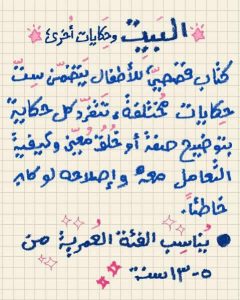 البَيت وحِكايات أُخرى
كتاب قصصيّ للأطفال يَتضمّن سِتّ
حِكايات مُختلفة، تَنفَرد كل حكاية
بتوضيح صفة أو خلُق مُعيّن وكيفية
التَّعامل معه وإصلاحه لو كان
خاطئًا.
● يُناسِب الفئة العُمرية من
٥-١٣ سنة